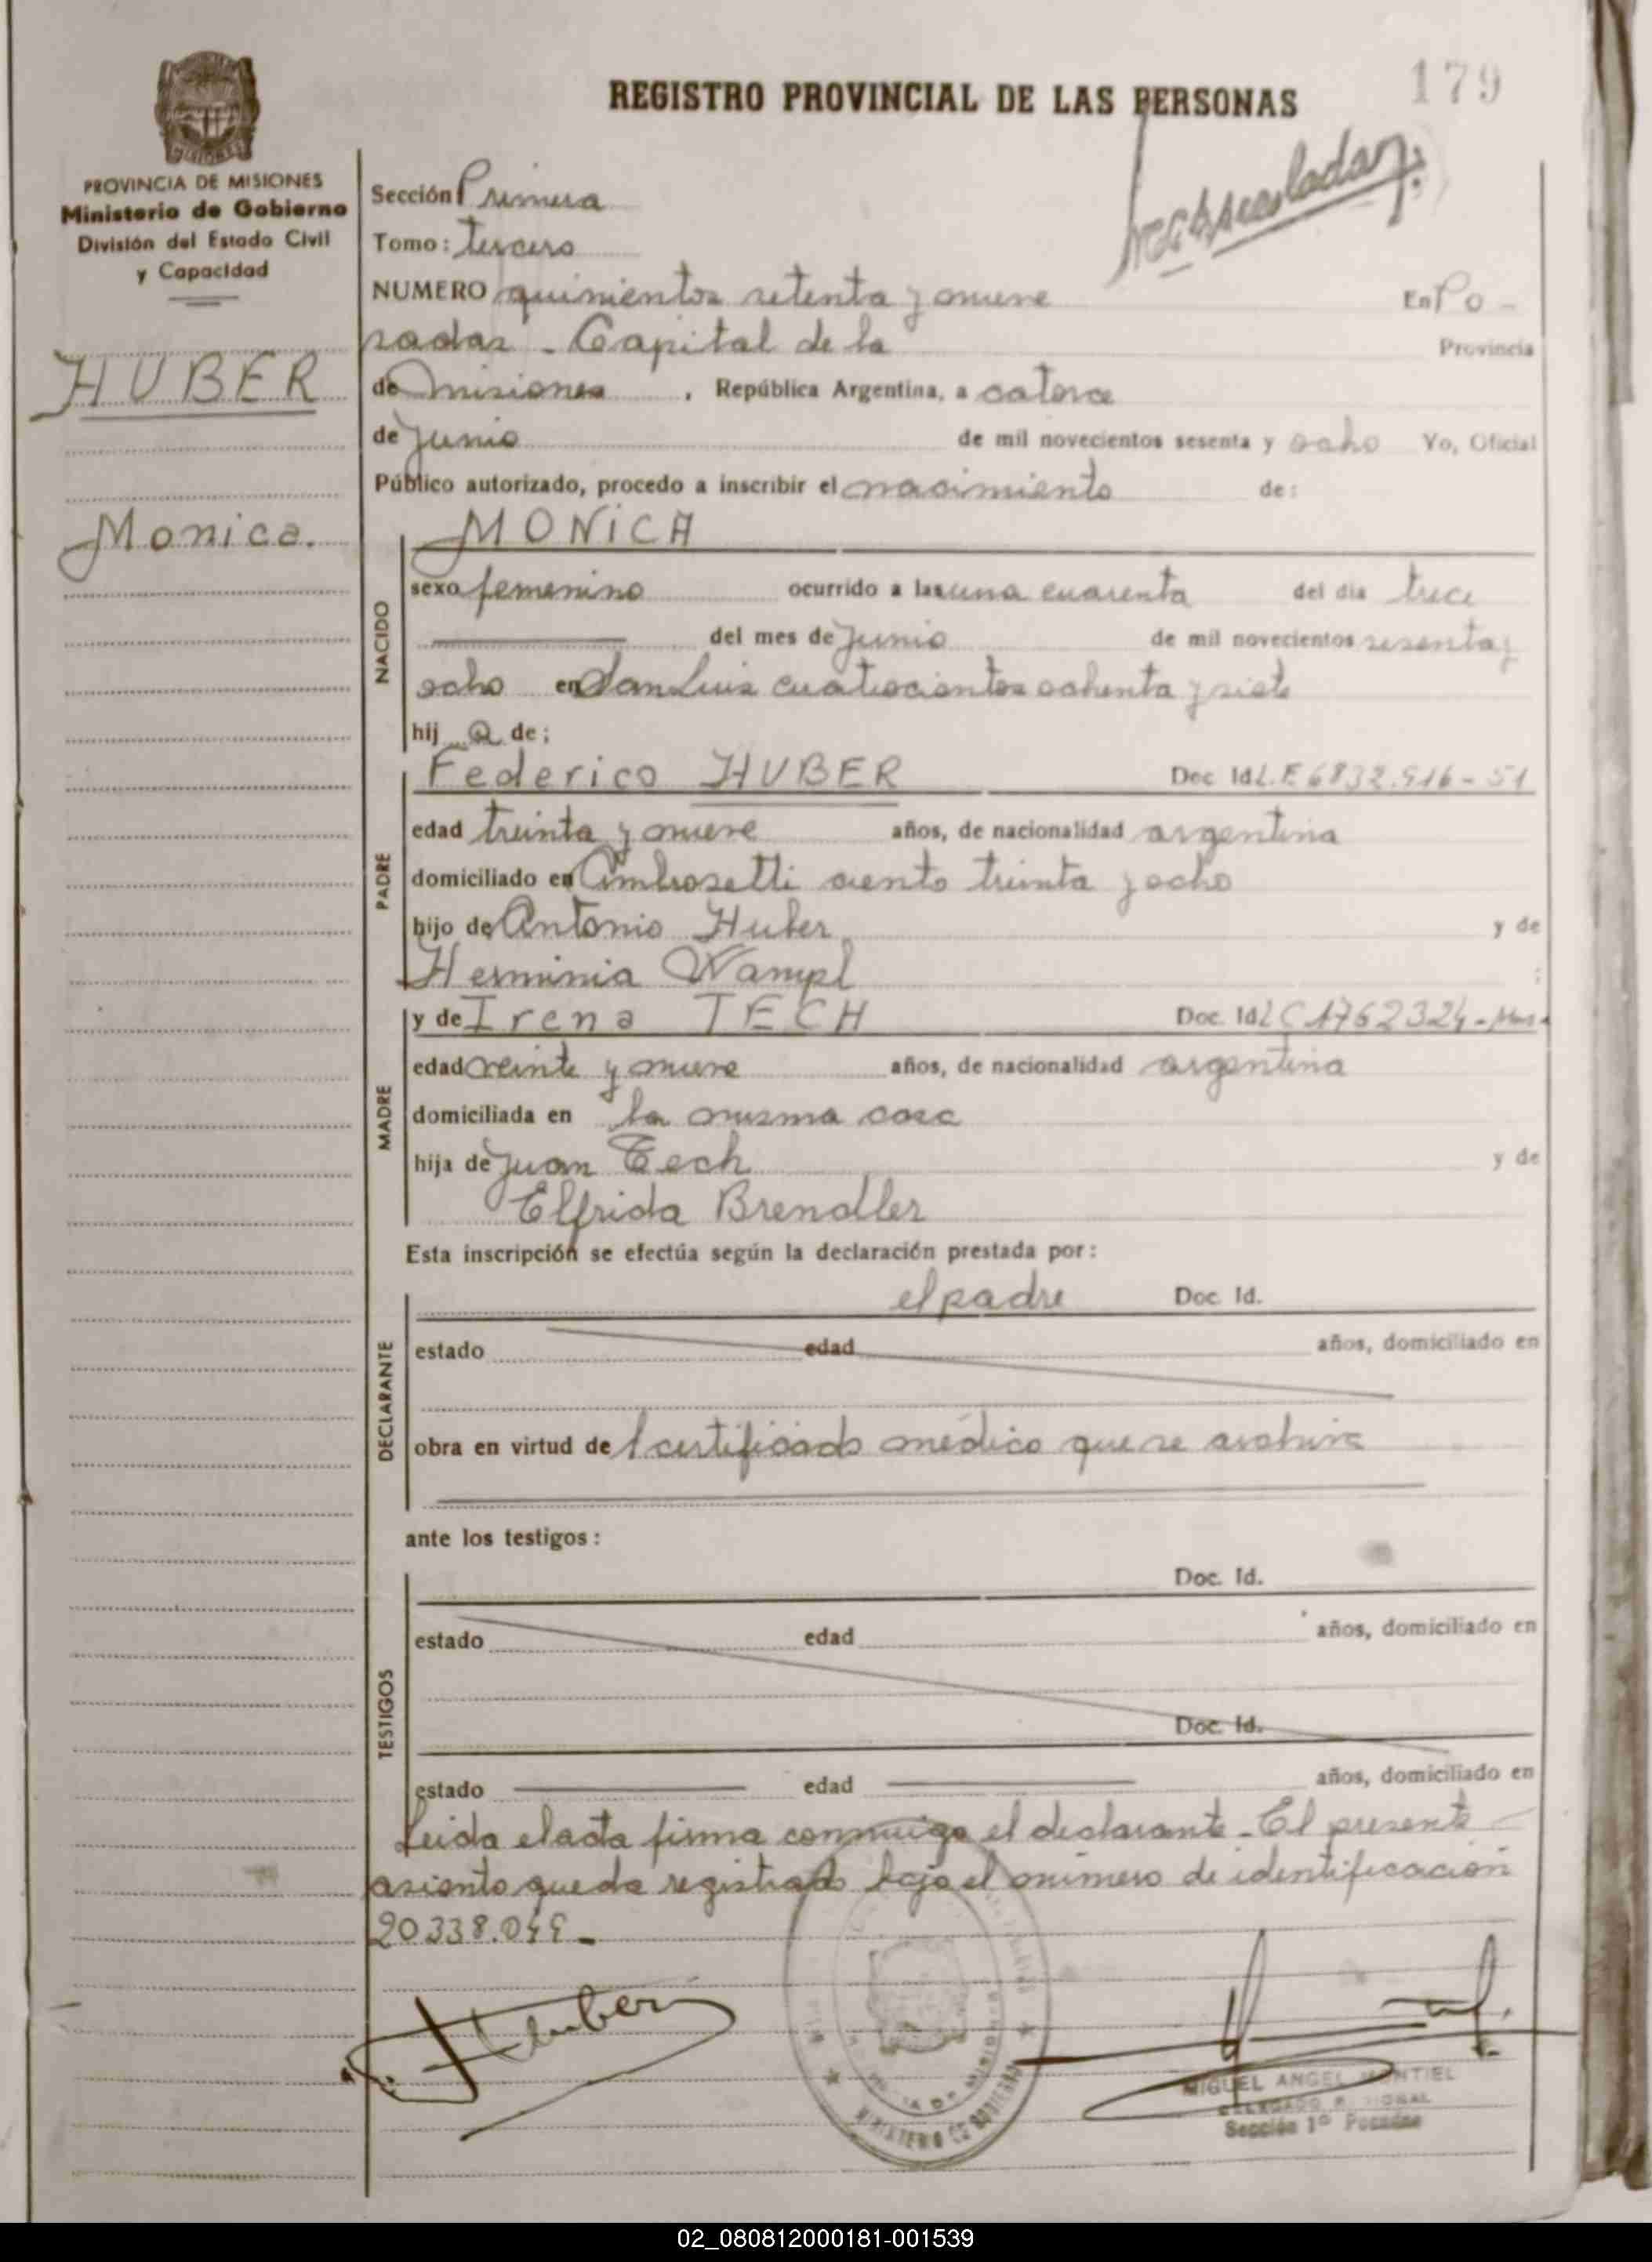 179
REGISTRO PROVINCIAL DE LAS PERSONAS
PROVINCIA DE MISIONES
Ministerio de Gobierno
División del Estado Civil
y Capacidad
Sección Primera
Tomo: tercero
NUMERO quinientos setenta y nueve En Po-
sadas - Capital de la Provincia
HUBER
de misiones, República Argentina, a catorce
de Junio de mil novecientos sesenta y ocho Yo, Oficial
Público autorizado, procedo a inscribir el nacimiento de:
Monica.
MONiCA
NACIDO
sexo femenino ocurrido a las una cuarenta del día trece
del mes de Junio de mil novecientos sesenta y
ocho en San Luis cuatrocientos ochenta y siete
hij a de;
PADRE
Federico HUBER Doc Id L.E 6832.916-51
edad treinta y nueve años, de nacionalidad argentina
domiciliado en Ambrosetti ciento treinta y ocho
hijo de Antonio Huber y de
Herminia Wampl
MADRE
y de Irena TECH Doc. Id L C 1762324-
edad veinte y nueve años, de nacionalidad argentina
domiciliada en la misma casa
hija de Juan Tech y de
Elfrida Brendler
Esta inscripción se efectúa según la declaración prestada por:
DECLARANTE
el padre Doc. Id.
estado edad años, domiciliado en
obra en virtud de l certificado médico que se archiva
ante los testigos:
TESTIGOS
Doc. Id.
estado edad años, domiciliado en
Doc. Id.
estado edad años, domiciliado en
Leida el acta firma conmigo el declarante - El presente
asiento queda registrado bajo el número de identificación
20.338.049-
Huber
MINISTERIO DE GOBIERNO
MIGUEL ANGEL MONTIEL
Sección 1º Posadas
02_080812000181-001539